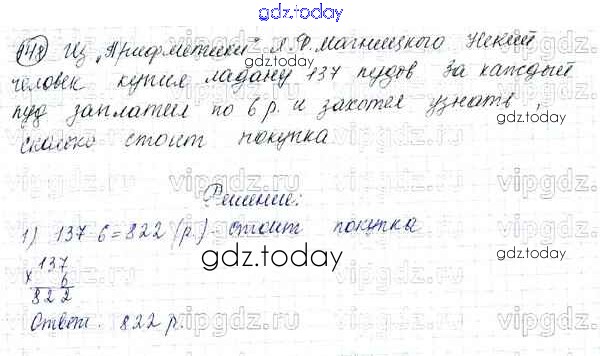 gdz.today
148 Из "Арифметики" Л.Ф. Магницкого Некий
человек купил ладану 137 пудов за каждый
пуд заплатил по 6 р. и захотел узнать,
сколько стоит покупка
Решение:
1) 137 6=822 (р.) - стоит покупка
gdz.today
137
× 6
822
Ответ: 822 р.
gdz.today